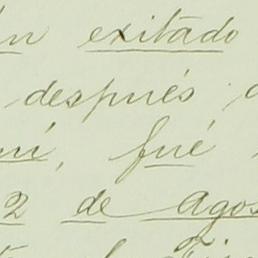 exitado
después
fué
2 de Agos